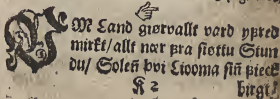 UM Land giørvallt vard ypred
mirkt/ allt nær þra siøttu Stun
du/ Solen þvi Liooma siñ pieck
K 2 birgt/